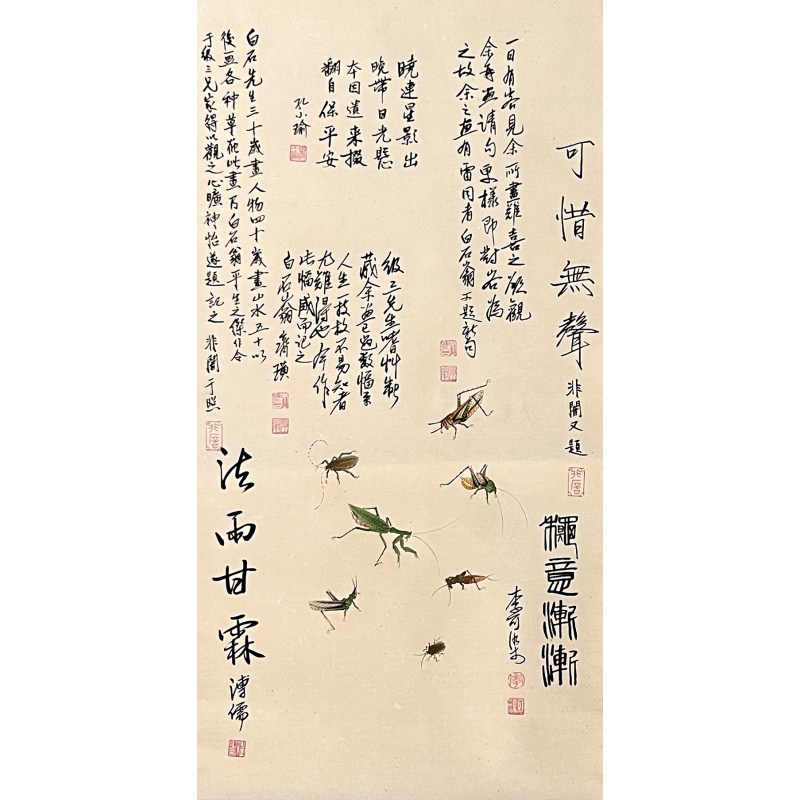 可惜無聲
非闇又題
一日有客見余所畫雞喜之欲觀
余再畫請勾更樣即對客為
之故余之畫有雷同者白石翁
曉連星影出
晚帶日光懸
本因遺來掇
翻自保平安
孔小瑜
白石先生三十歲畫人物四十歲畫山水五十以
後畫各種草蟲此畫乃白石翁平生之傑作今
于級三兄家得以觀之心曠神怡遂題記之 非闇于照
級三先生嗜
藏余畫已過數幅矣
人生一技故不易知者
尤難得也今作
此幅感而記之
白石山翁齊璜
秋意漸漸
法雨甘霖
溥儒